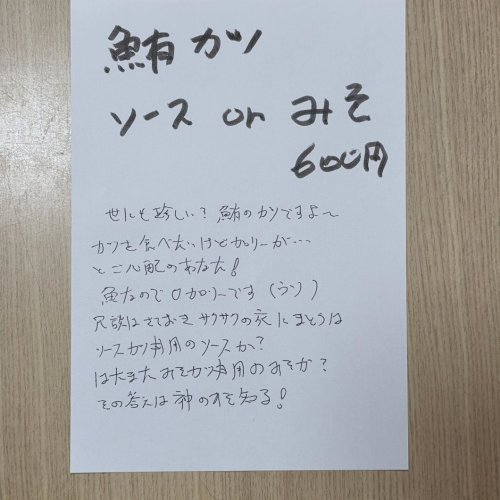 鮪カツ
ソース or みそ
600円
世にも珍しい？鮪のカツですよ〜
カツを食べたいけどカロリーが…
とご心配のあなた！
魚なので0カロリーです（ウソ）
冗談はさておきサクサクの衣にまとうは
ソースカツ専用のソースか？
はたまたみそカツ専用のみそか？
その答えは神のみぞ知る！